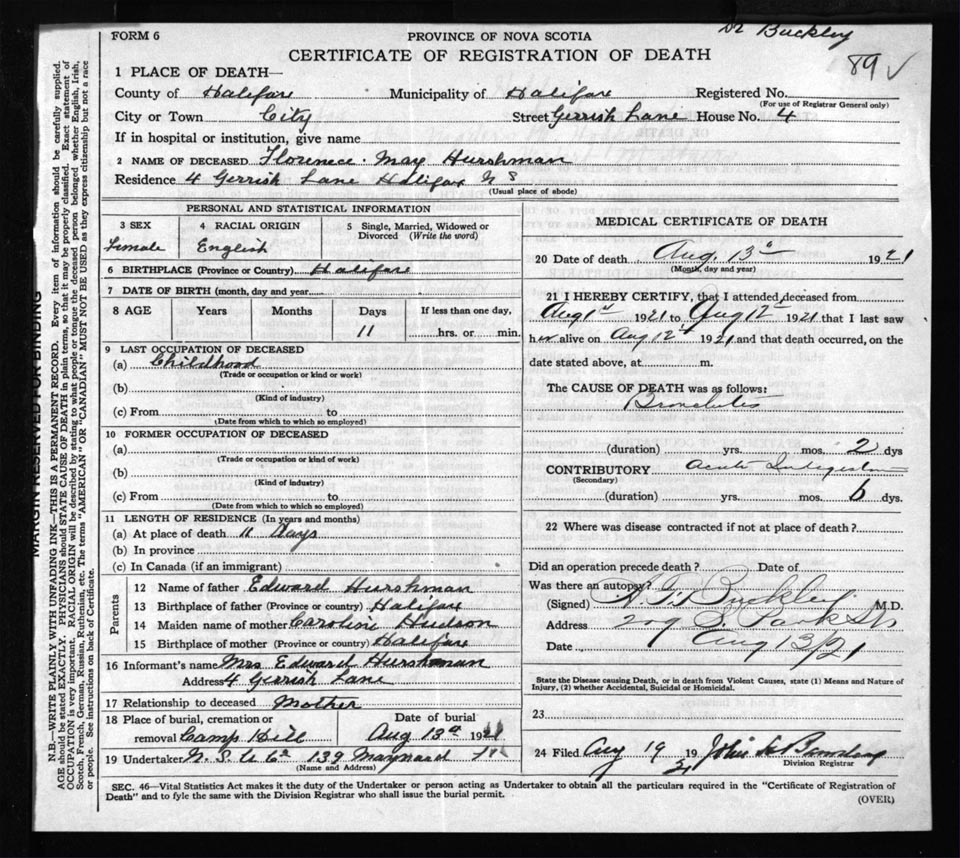 Dr Buckley
FORM 6
PROVINCE OF NOVA SCOTIA
CERTIFICATE OF REGISTRATION OF DEATH
89 ✓
1 PLACE OF DEATH—
County of Halifax Municipality of Halifax Registered No.
(For use of Registrar General only)
City or Town City Street Gerrish Lane House No. 4
If in hospital or institution, give name
2 NAME OF DECEASED Florence May Hurshman
Residence 4 Gerrish Lane Halifax N S
(Usual place of abode)
PERSONAL AND STATISTICAL INFORMATION
3 SEX 4 RACIAL ORIGIN 5 Single, Married, Widowed or Divorced (Write the word)
Female English
6 BIRTHPLACE (Province or Country) Halifax
7 DATE OF BIRTH (month, day and year
8 AGE Years Months Days If less than one day,
11 hrs. or min.
9 LAST OCCUPATION OF DECEASED
(a) Childhood
(Trade or occupation or kind or work)
(b)
(Kind of industry)
(c) From to
(Date from which to which so employed)
10 FORMER OCCUPATION OF DECEASED
(a)
(Trade or occupation or kind of work)
(b)
(Kind of industry)
(c) From to
(Date from which to which so employed)
11 LENGTH OF RESIDENCE (In years and months)
(a) At place of death 11 days
(b) In province
(c) In Canada (if an immigrant)
Parents
12 Name of father Edward Hurshman
13 Birthplace of father (Province or country) Halifax
14 Maiden name of mother Caroline Hudson
15 Birthplace of mother (Province or country) Halifax
16 Informant's name Mrs Edward Hurshman
Address 4 Gerrish Lane
17 Relationship to deceased Mother
18 Place of burial, cremation or removal Camp Hill Date of burial Aug 13th 1921
19 Undertaker N. S. U Co 139 Maynard St
(Name and Address)
MEDICAL CERTIFICATE OF DEATH
20 Date of death Aug. 13th 1921
(Month, day and year)
21 I HEREBY CERTIFY, that I attended deceased from
Aug 1st 1921 to Aug 12th 1921 that I last saw
her alive on Aug 12th 1921 and that death occurred, on the
date stated above, at m.
The CAUSE OF DEATH was as follows:
Bronchitis
(duration) yrs. mos. 2 dys
CONTRIBUTORY Acute Indigestion
(Secondary)
(duration) yrs. mos. 6 dys.
22 Where was disease contracted if not at place of death?
Did an operation precede death? Date of
Was there an autopsy?
(Signed) Buckley M.D.
Address 209 S. Park St
Date Aug 13/21
State the Disease causing Death, or in death from Violent Causes, state (1) Means and Nature of
Injury, (2) whether Accidental, Suicidal or Homicidal.
23
24 Filed Aug 19 1921 John
Division Registrar
SEC. 46—Vital Statistics Act makes it the duty of the Undertaker or person acting as Undertaker to obtain all the particulars required in the "Certificate of Registration of
Death" and to fyle the same with the Division Registrar who shall issue the burial permit.
(OVER)
MARGIN RESERVED FOR BINDING
N.B.—WRITE PLAINLY WITH UNFADING INK—THIS IS A PERMANENT RECORD. Every item of information should be carefully supplied.
AGE should be stated EXACTLY. PHYSICIANS should STATE CAUSE OF DEATH in plain terms, so that it may be properly classified. Exact statement of
OCCUPATION is very important. RACIAL ORIGIN will be described by stating to what people or tongue the deceased person belonged whether English, Irish,
Scotch, French, German, Russian, Ruthenian, etc. The terms "AMERICAN" OR "CANADIAN" MUST NOT BE USED as they express citizenship but not a race
or people. See instructions on back of Certificate.